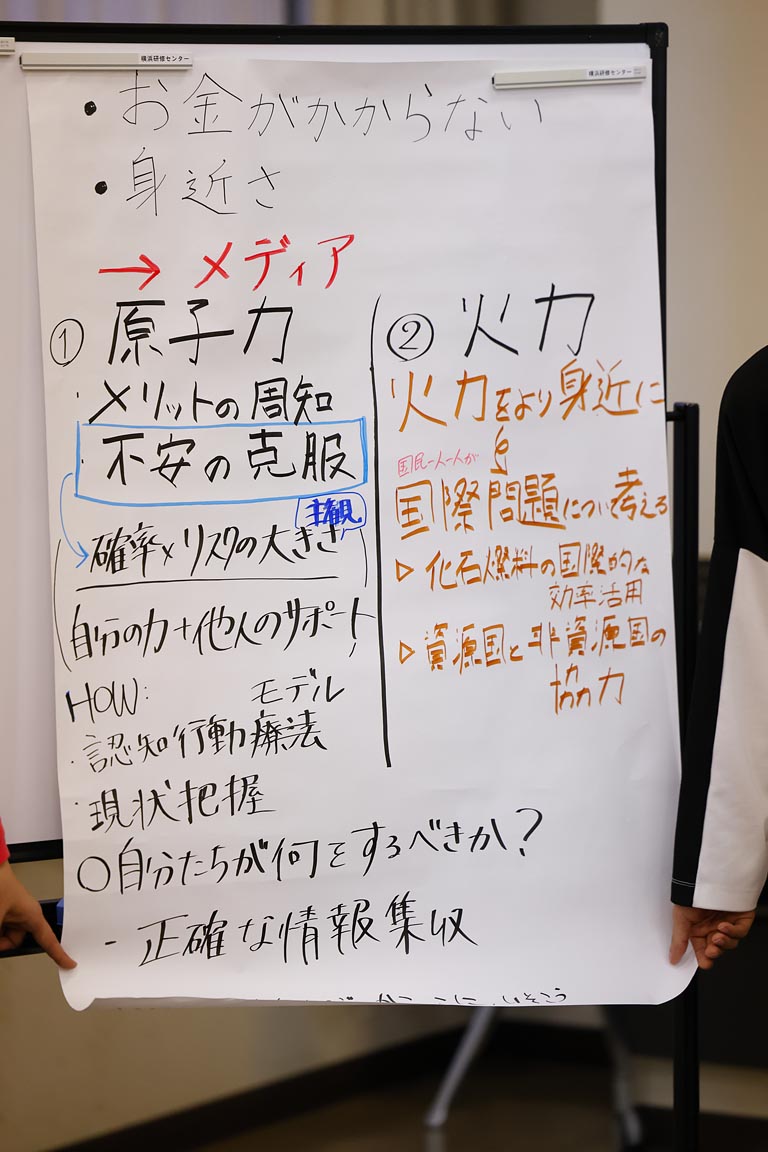 横浜研修センター
横浜研修センター
・お金がかからない
・身近さ
→ メディア
① 原子力
・メリットの周知
・不安の克服
主観
確率×リスクの大きさ
自分の力+他人のサポート
HOW: モデル
・認知行動療法
・現状把握
② 火力
火力をより身近に
国民一人一人が
国際問題について考える
▷ 化石燃料の国際的な
効率活用
▷ 資源国と非資源国の
協力
○自分たちが何をするべきか?
- 正確な情報集収